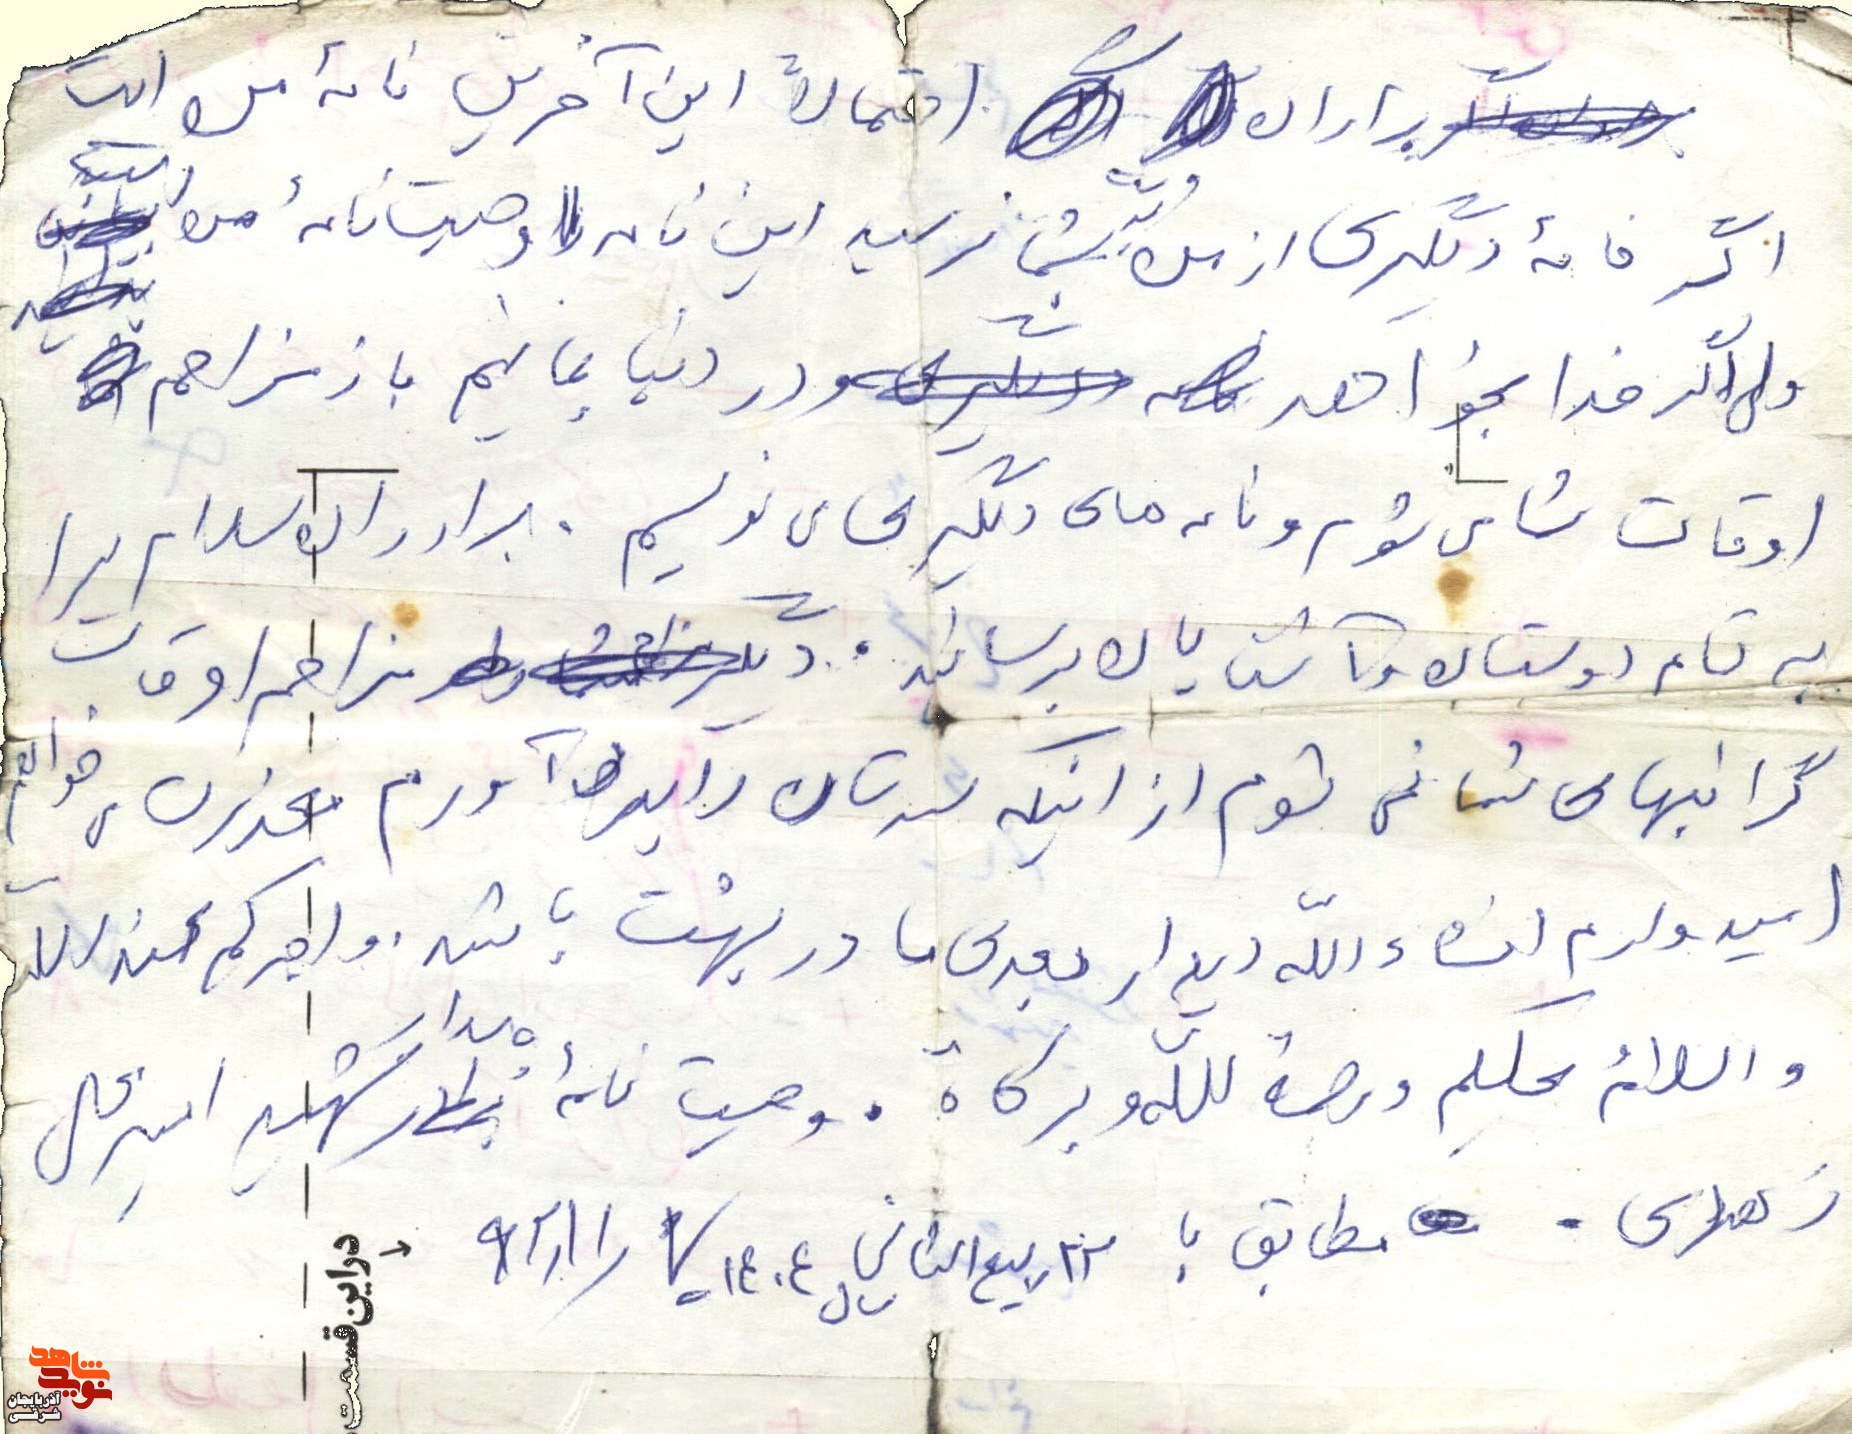 برادران احتمالاً این آخرین نامهٔ من است
اگر نامهٔ دیگری از من بشما نرسید این نامه وصیتنامهٔ من است
ولی اگر خدا بخواهد و در دنیا بمانیم باز مزاحم
اوقات شما می شوم و نامه های دیگری می نویسیم . برادران سلام مرا
به تمام دوستان و آشنایان برسانید . دیگر مزاحم اوقات
گرانبهای شما نمی شوم از اینکه سرتان را بدرد آوردم معذرت می خواهم
امیدوارم انشاءالله دیدار بعدی ما در بهشت باشد . و اجرکم عندالله
و السلام علیکم و رحمة الله و برکاة . وصیت نامهٔ پاسدار شهید امیر
زهدی . مطابق با ۲۳ ربیع الثانی سال ۱۴۰۴
در این قسمت
نوید شاهد
آذربایجان شرقی